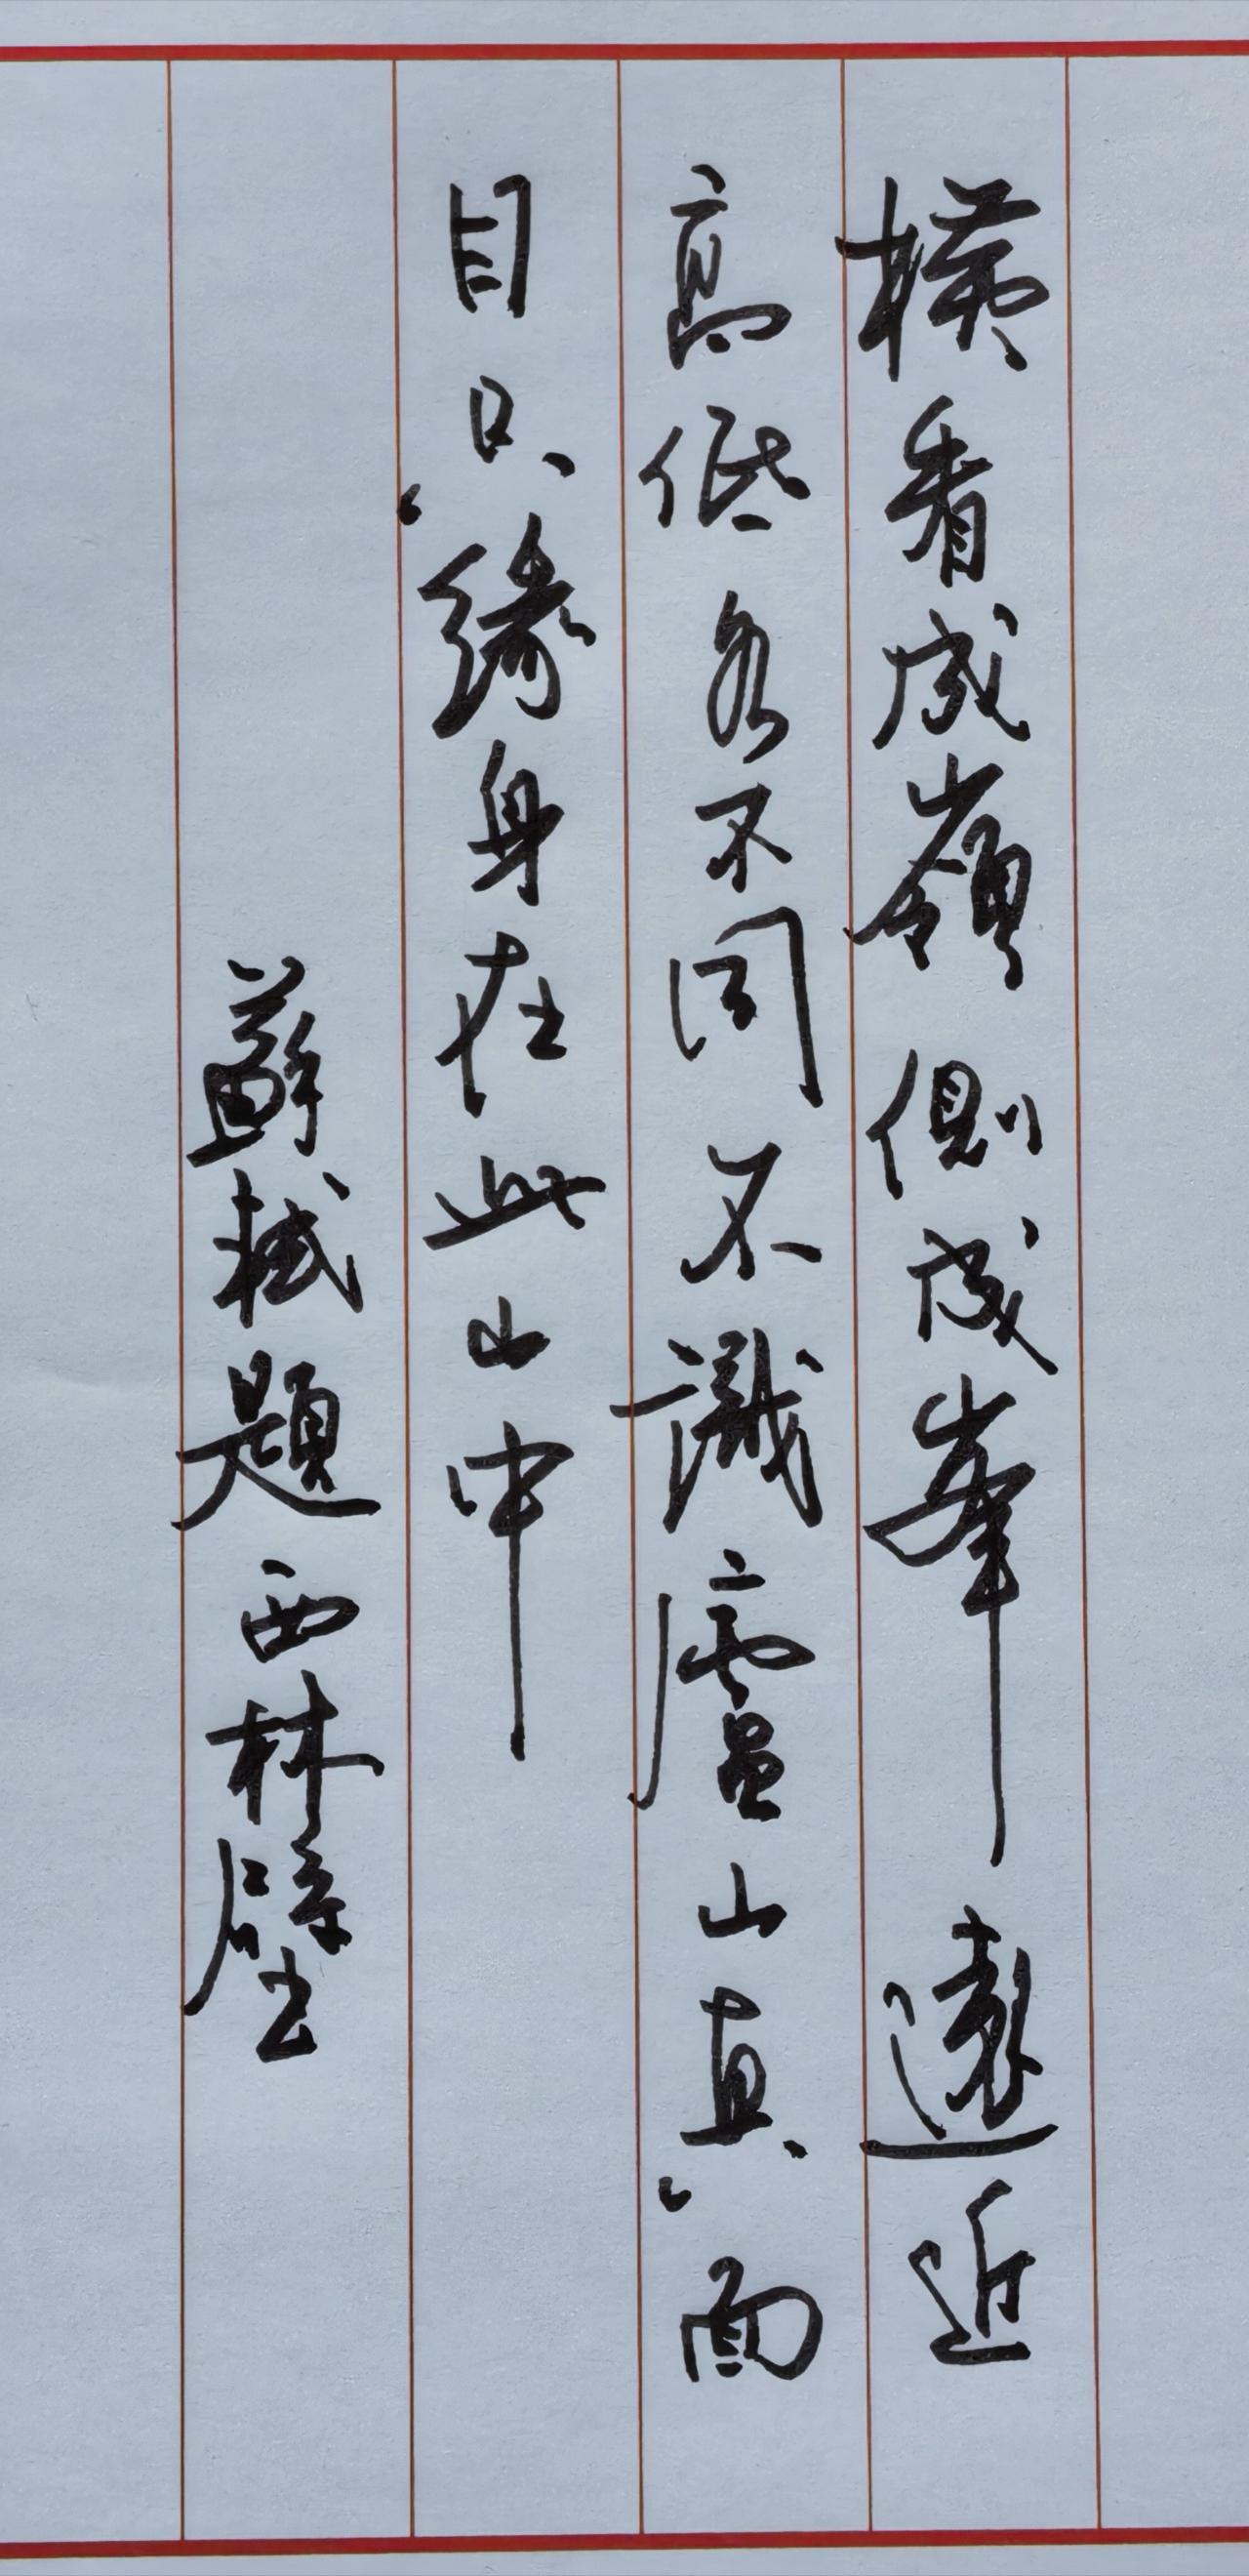 橫看成嶺側成峯遠近
高低各不同不識廬山真面
目只緣身在此山中
蘇軾題西林壁